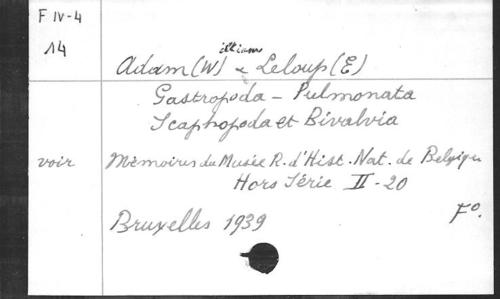 F IV-4
14
illiam
Adam (W) & Leloup (E)
Gastropoda - Pulmonata
Scaphopoda et Bivalvia
voir Mémoires du Musée R. d'Hist. Nat. de Belgique
Hors Série II - 20
Bruxelles 1939 F°.